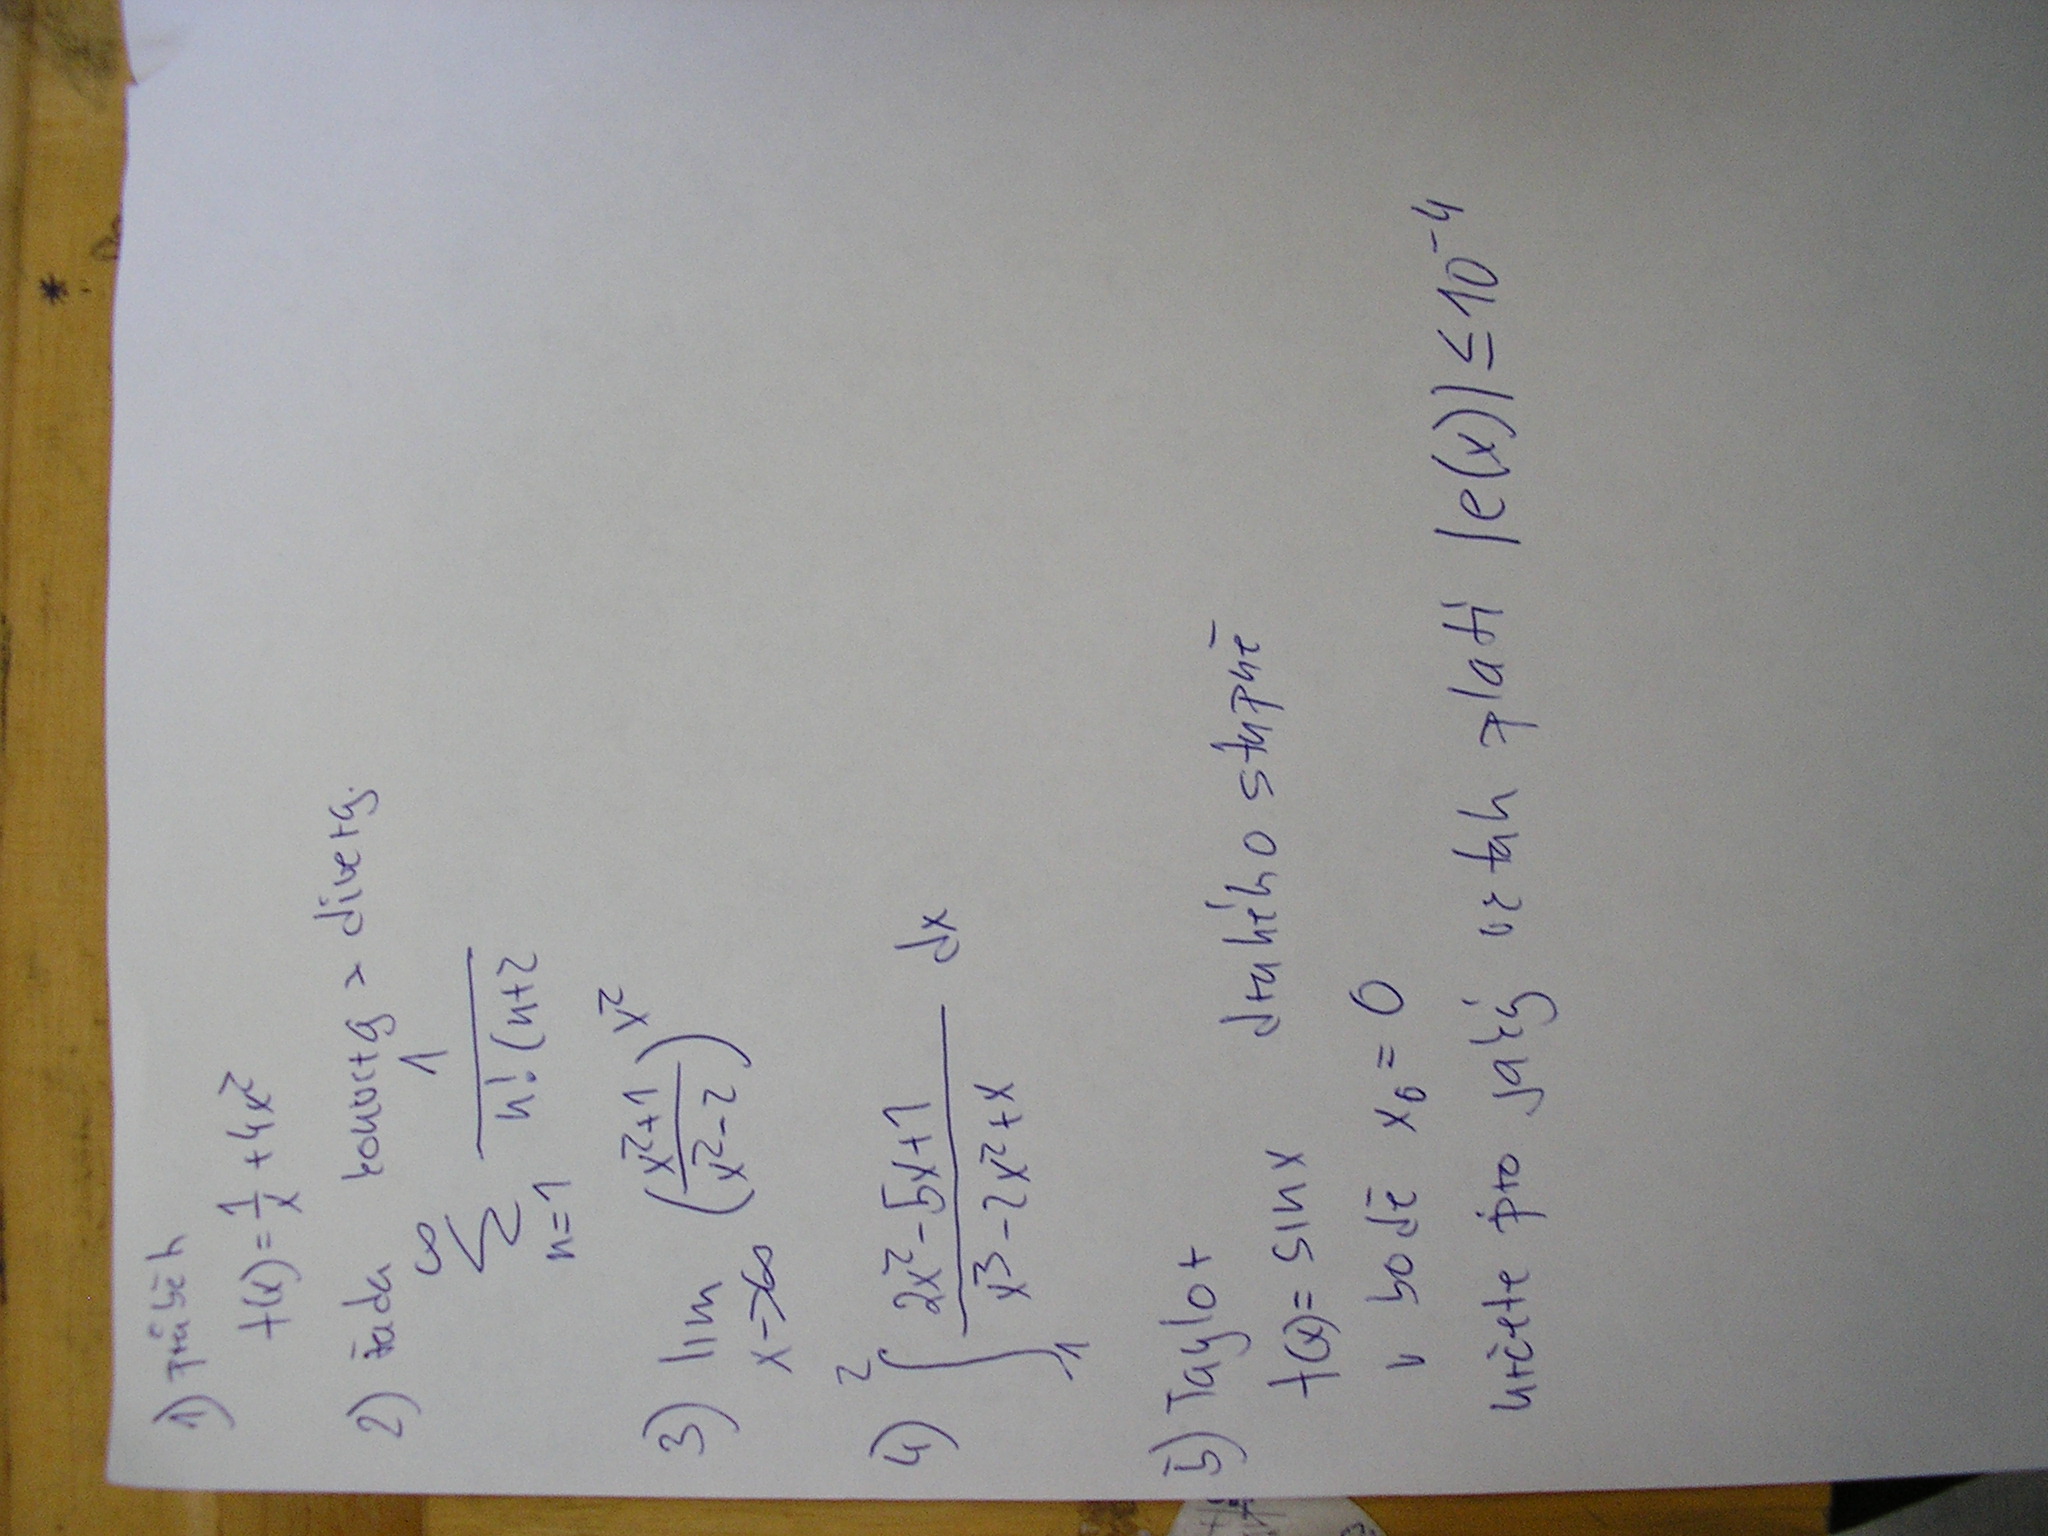 1) průběh
f(x) = 1/x + 4x²
2) řada konverg > diverg.
∞ ∑ n=1 1/(n! (n+2
3) lim x→∞ ((x²+1)/(x²-2))^x²
4) ∫₁² (2x²-5x+1)/(x³-2x²+x) dx
5) Taylor druhého stupně
f(x) = sin x
v bodě x₀ = 0
určete pro jaký vztah platí |e(x)| ≤ 10⁻⁴